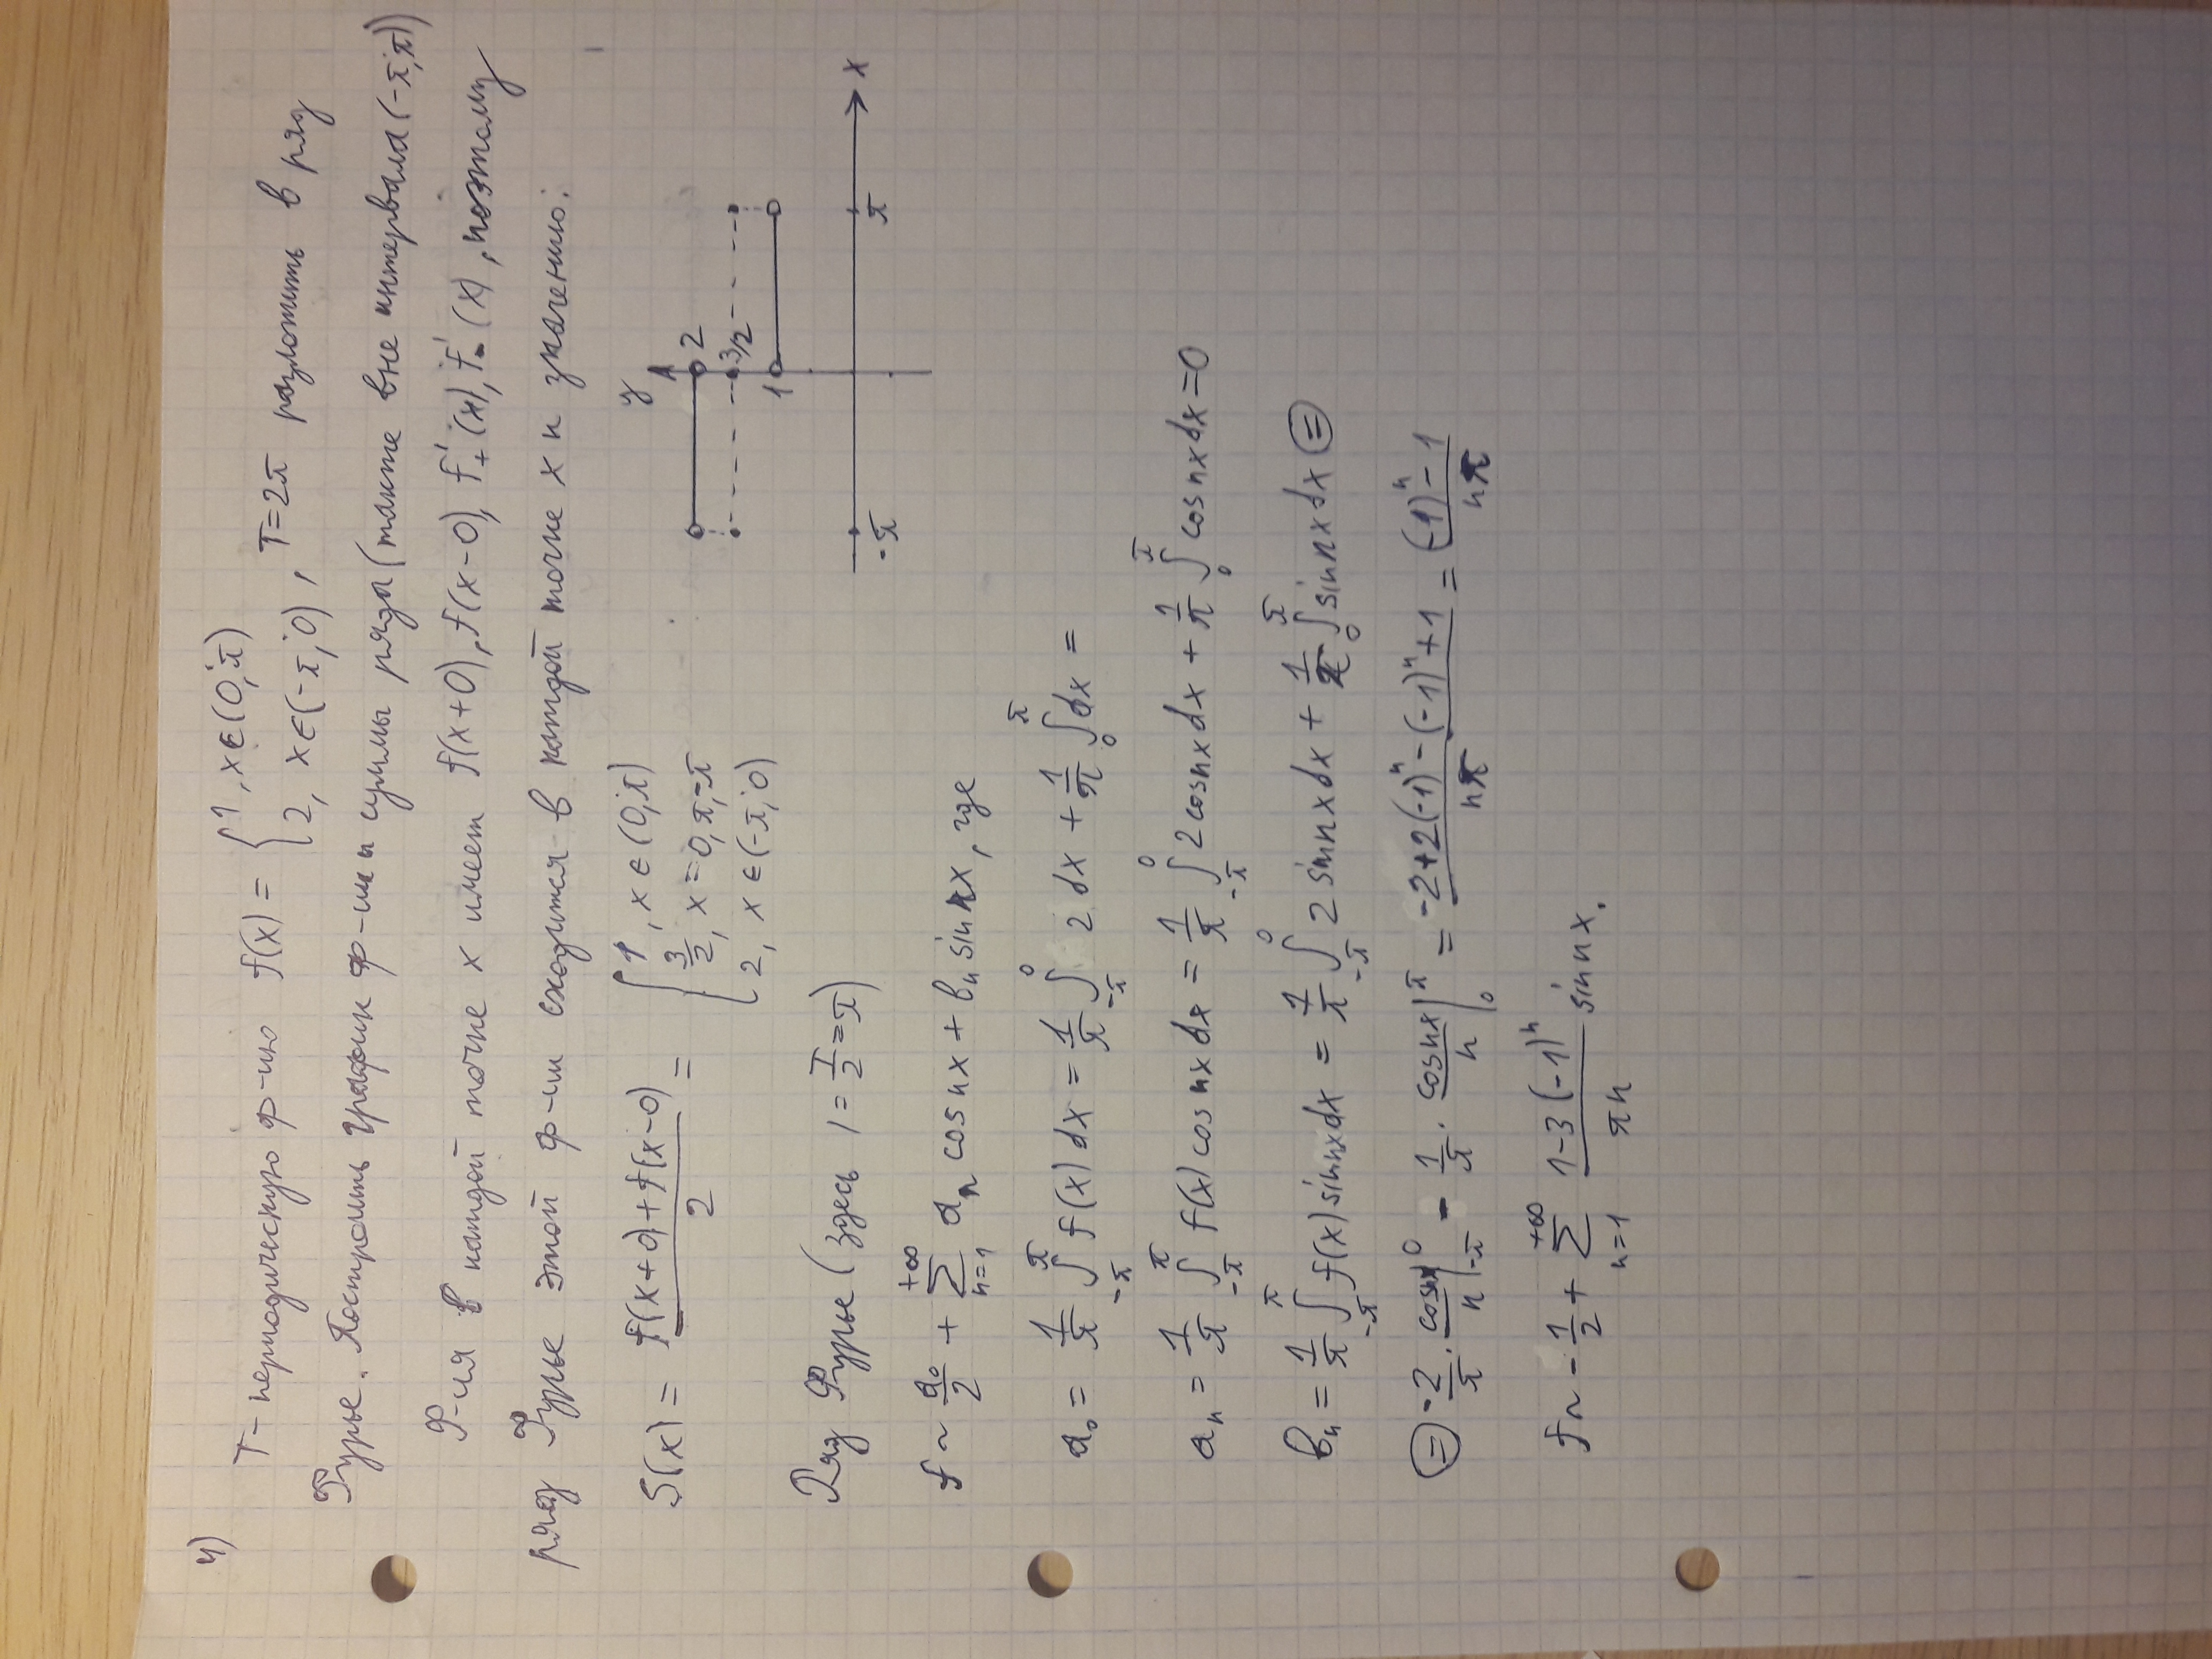 4)
T-периодическую ф-ию f(x) = { 1, x∈(0;π) 2, x∈(-π;0) , T=2π разложить в ряд
Фурье. Построить график ф-ии и суммы ряда (также вне интервала (-π;π))
Ф-ия в каждой точке x имеет f(x+0), f(x-0), f'₊(x), f'₋(x), поэтому
ряд Фурье этой ф-ии сходится в каждой точке x к значению:
S(x) = (f(x+0)+f(x-0))/2 = { 1, x∈(0;π) 3/2, x=0,π,-π 2, x∈(-π;0)
y
2
3/2
1
-π π x
Ряд Фурье (здесь l = T/2 = π)
f ~ a₀/2 + ∑_{n=1}^{+∞} aₙ cos nx + bₙ sin nx, где
a₀ = 1/π ∫_{-π}^{π} f(x) dx = 1/π ∫_{-π}^{0} 2 dx + 1/π ∫_{0}^{π} dx =
aₙ = 1/π ∫_{-π}^{π} f(x) cos nx dx = 1/π ∫_{-π}^{0} 2 cos nx dx + 1/π ∫_{0}^{π} cos nx dx = 0
bₙ = 1/π ∫_{-π}^{π} f(x) sin nx dx = 1/π ∫_{-π}^{0} 2 sin nx dx + 1/π ∫_{0}^{π} sin nx dx =
= -2/π · cos nx/n |_{-π}^{0} - 1/π · cos nx/n |_{0}^{π} = (-2+2(-1)ⁿ-(-1)ⁿ+1)/(nπ) = ((-1)ⁿ-1)/(nπ)
f ~ -1/2 + ∑_{n=1}^{+∞} (1-3(-1)ⁿ)/(πn) sin nx.